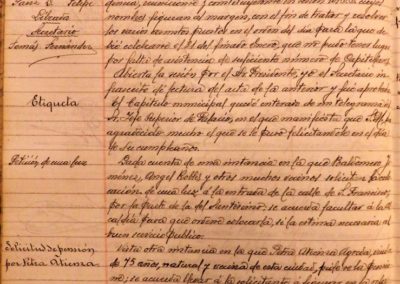 Sanz D. Felipe
Secretario
Tomás Fernández
nombres figuran al margen, con el fin de tratar y resolver
los varios asuntos puestos en el orden del día para la que de-
bió celebrarse el 31 del pasado Enero, que no pudo tener lugar
por falta de asistencia de suficiente número de Capitulares.
Abierta la sesión por el Sr. Presidente, yo el Secretario in-
frascrito dí lectura del acta de la anterior y fué aprobada.
Etiqueta
El Capítulo municipal quedó enterado de un telegrama del
Sr. Jefe Superior de Palacio, en el que manifiesta que S.M.
agradeció mucho el que se le haya felicitado en el día
de su cumpleaños.
Petición de una luz
Dada cuenta de una instancia en la que Baldomero Ji-
ménez, Angel Robles y otros muchos vecinos solicitan la colo-
cación de una luz á la entrada de la calle de S. Francisco,
por la parte de la del Santísimo, se acuerda facultar á la Al-
caldía para que ordene colocarla, si la estima necesaria al
buen servicio público.
Solicitud de pensión
por Petra Atienza
Vista otra instancia en la que Petra Atienza Agreda, viuda
de 75 años, natural y vecina de esta ciudad, pide se la pensio-
ne; se acuerda